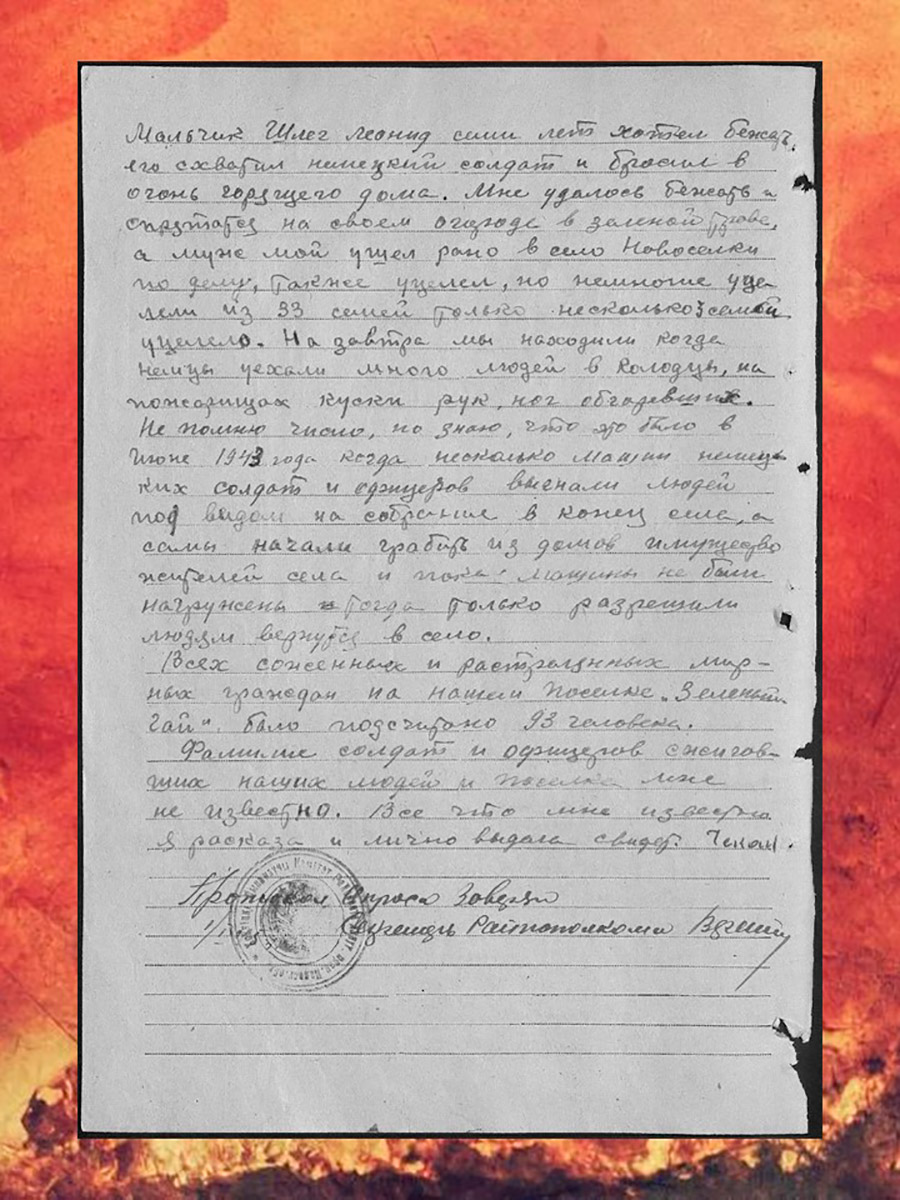 Мальчик Шлег Леонид семи лет хотел бежать,
его схватил немецкий солдат и бросил в
огонь горящего дома. Мне удалось бежать и
спрятатся на своем огороде в зеленой траве,
а муж мой ушел рано в село Новоселки
по делу, также уцелел, но немногие уце-
лели из 33 семей только несколько семей
уцелело. На завтра мы находили когда
немцы уехали много людей в колодцы, на
пожарищах куски рук, ног обгоревших.
Не помню число, но знаю, что это было в
июне 1943 года когда несколько машин немец-
ких солдат и офицеров выгнали людей
под видом на собрание в конец села, а
самы начали грабить из домов имущество
жителей села и пока машины не были
нагружены тогда только разрешили
людям вернутся в село.
Всех сожженных и растрелянных мир-
ных граждан на нашем поселке „Зеленый
Гай" было подсчитано 93 человека.
Фамилие солдат и офицеров сжигав-
ших наших людей и поселка мне
не известно. Все что мне известно
я расказа и лично выдала свидет.
Протокол опроса Заверяю
Райисполкома